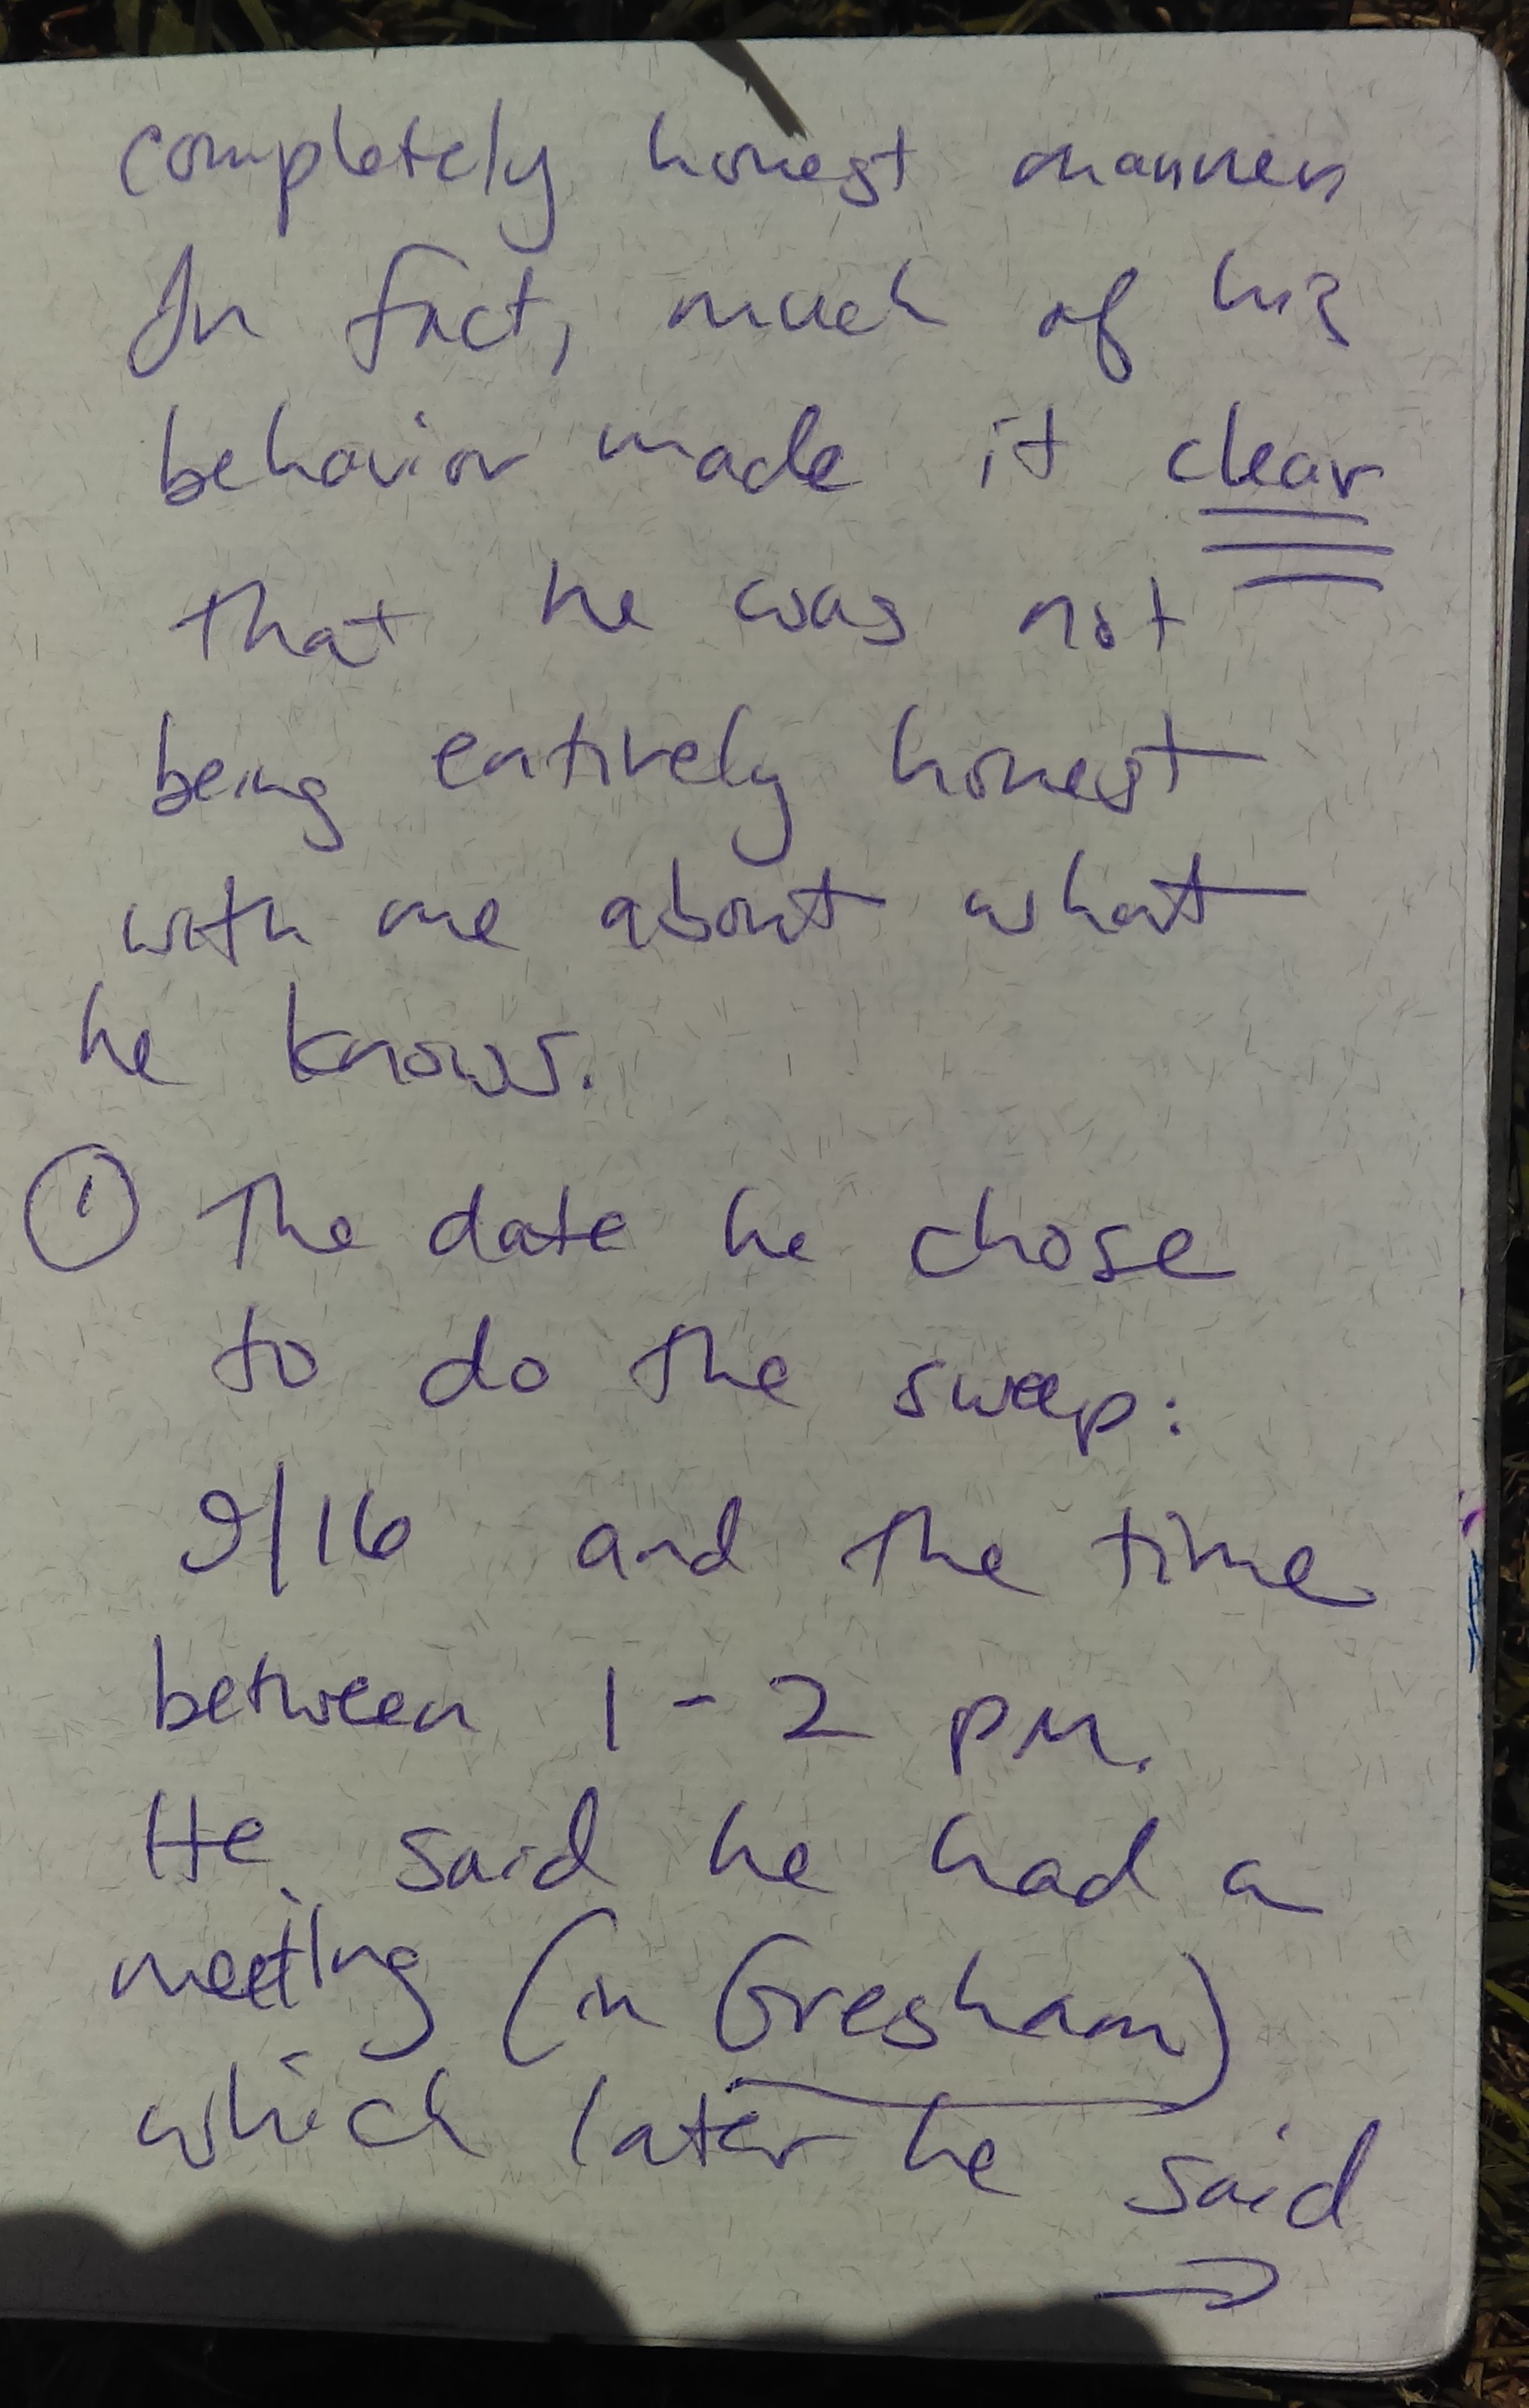 completely honest manner
In fact, much of his
behavior made it clear
that he was not
being entirely honest
with me about what
he knows.
① The date he chose
to do the sweep:
9/16 and the time
between 1-2 PM.
He said he had a
meeting (in Gresham)
which later he said
→